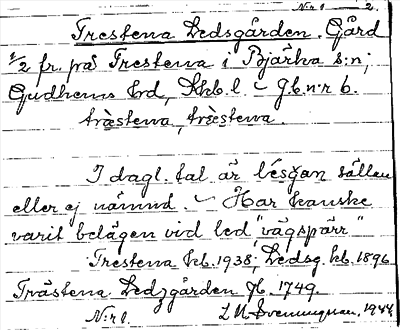 N:r 1 — 2.
Trestena Ledsgården. Gård
1/2 fr. på Trestena i Bjärka s:n,
Gudhems hrd, Skb. l. – Jb. n:r 6.
trästena, träestena.
I dagl. tal är lésgan sällan
eller ej nämnd. – Har kanske
varit belägen vid led "vägspärr"
Trestena kb. 1938; Ledsg. kb. 1896
Trästena Ledzgården Jb. 1749.
N:r 1. L. M. Svenungsson, 1944